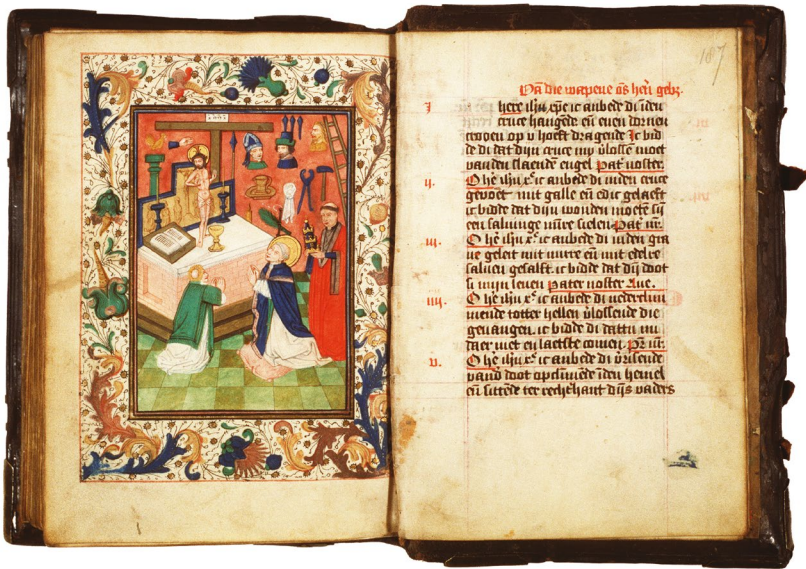 187
Va die wapene ōs herē gebz.
I here ihū xp̄e ic anbede di īden
cruce hangēde eñ enen dornen
croen op v hoeft dragende Ic bid
de di dat dijn cruce mi v̓losse moet
van den slaende engel Pat̄ noster.
II. O he ihū xᵉ ic anbede di inden cruce
gewōet mit galle eñ edic gelaeft
ic bidde dat dijn wonden moetē sij
een salvinge mijnre sielen Pat̄ nr̄.
III. O he ihū xᵉ ic anbede di in den gra
ue geleit mit mirre eñ mit edelre
saluen gesalft ic bidde dat dijn doot
si mijn leuen pater noster Aue.
IIII. O he ihū xᵉ ic anbede di nederclim
mende totter hellen v̓lossende die
geuangen ic bidde di dattu mi
daer niet en laetste comen. Pr̄ nr̄.
V. O he ihū xᵉ ic anbede di v̓risende
vand̓ doot opclimēde īden hemel
eñ sittēde ter rechʰhant dijs vaders